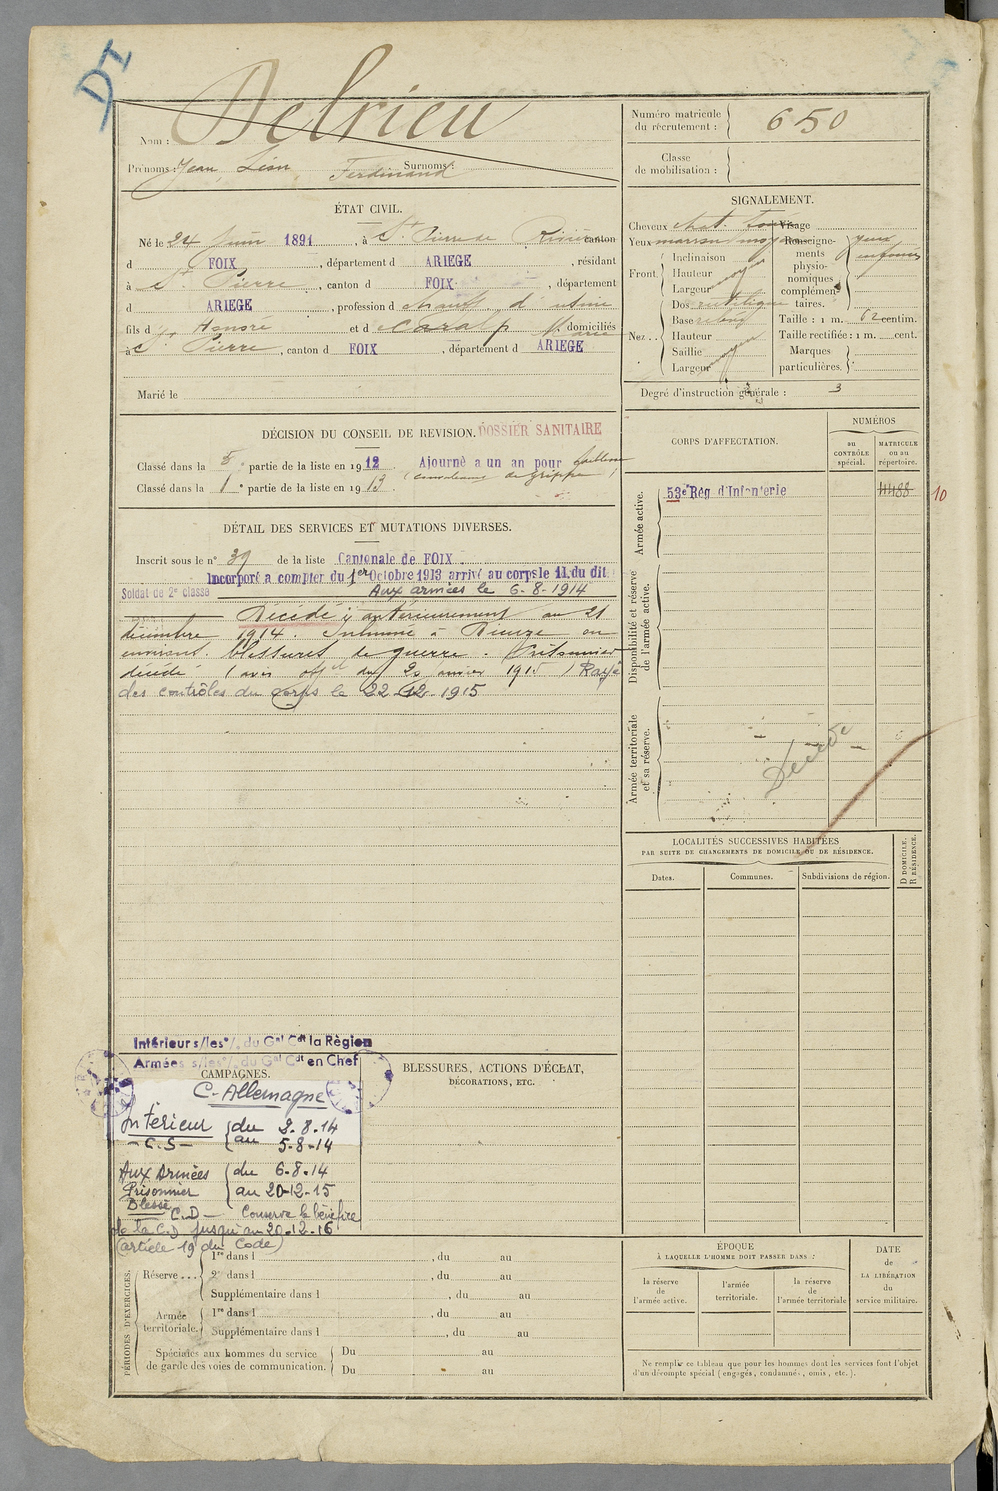 DI
Nom : Delrieu
Prénoms : Jean, Léon, Ferdinand Surnoms :
Numéro matricule du recrutement : 650
Classe de mobilisation :
ÉTAT CIVIL.
Né le 24 Juin 1891, à St Pierre de Rivière canton
d FOIX, département d ARIEGE, résidant
à St Pierre, canton d FOIX, département
d ARIEGE, profession d
fils d Honoré et d Caralp Marie domiciliés
à St Pierre, canton d FOIX, département d ARIEGE
Marié le
SIGNALEMENT.
Cheveux chat. Visage
Yeux marron moyen Renseignements physionomiques complémentaires. yeux enfoncés
Front. Inclinaison
Hauteur moyen
Largeur
Nez.. Dos rectiligne
Base relevé
Hauteur
Saillie moyen
Largeur
Taille : 1 m. 62 centim.
Taille rectifiée : 1 m. cent.
Marques particulières.
Degré d'instruction générale : 3
DÉCISION DU CONSEIL DE REVISION. DOSSIER SANITAIRE
Classé dans la 5e partie de la liste en 1912 Ajourné a un an pour faiblesse
Classé dans la 1e partie de la liste en 1913. de grippe)
DÉTAIL DES SERVICES ET MUTATIONS DIVERSES.
Inscrit sous le n° 39 de la liste Cantonale de FOIX.
Incorporé a compter du 1er Octobre 1913 arrivé au corps le 11. du dit
Soldat de 2e classe Aux armées le 6-8-1914
Décédé antérieurement au 21
décembre 1914. Inhumé à Dieuze ou
environs. blessures de guerre. Prisonnier
décédé (avis offel du 20 1915) Rayé
des contrôles du corps le 22-12-1915
CORPS D'AFFECTATION.
NUMÉROS
au CONTRÔLE spécial.
MATRICULE ou au répertoire.
Armée active.
53e Rég d'Infanterie 4488 10
Disponibilité et réserve de l'armée active.
Armée territoriale et sa réserve.
Décédé
LOCALITÉS SUCCESSIVES HABITÉES
PAR SUITE DE CHANGEMENTS DE DOMICILE OU DE RÉSIDENCE.
Dates. Communes. Subdivisions de région. D DOMICILE. R RÉSIDENCE.
Intérieur s/les o/. du Gal Cdt la Région
Armées s/les o/. du Gal Cdt en Chef
CAMPAGNES.
C-Allemagne
Intérieur du 2.8.14
-C.S- au 5-8-14
Aux Armées du 6.8.14
Prisonnier au 20-12-15
Blessé C.D- Conserve le bénéfice
de la C.D jusqu'au 20-12-16
(article 19 du Code)
BLESSURES, ACTIONS D'ÉCLAT,
DÉCORATIONS, ETC.
PÉRIODES D'EXERCICES.
Réserve... 1re dans l , du au
2e dans l , du au
Supplémentaire dans l , du au
Armée territoriale. 1re dans l , du au
Supplémentaire dans l , du au
Spéciales aux hommes du service de garde des voies de communication. Du au
Du au
ÉPOQUE
À LAQUELLE L'HOMME DOIT PASSER DANS :
la réserve de l'armée active.
l'armée territoriale.
la réserve de l'armée territoriale
DATE de LA LIBÉRATION du service militaire.
Ne remplir ce tableau que pour les hommes dont les services font l'objet
d'un décompte spécial (engagés, condamnés, omis, etc.).